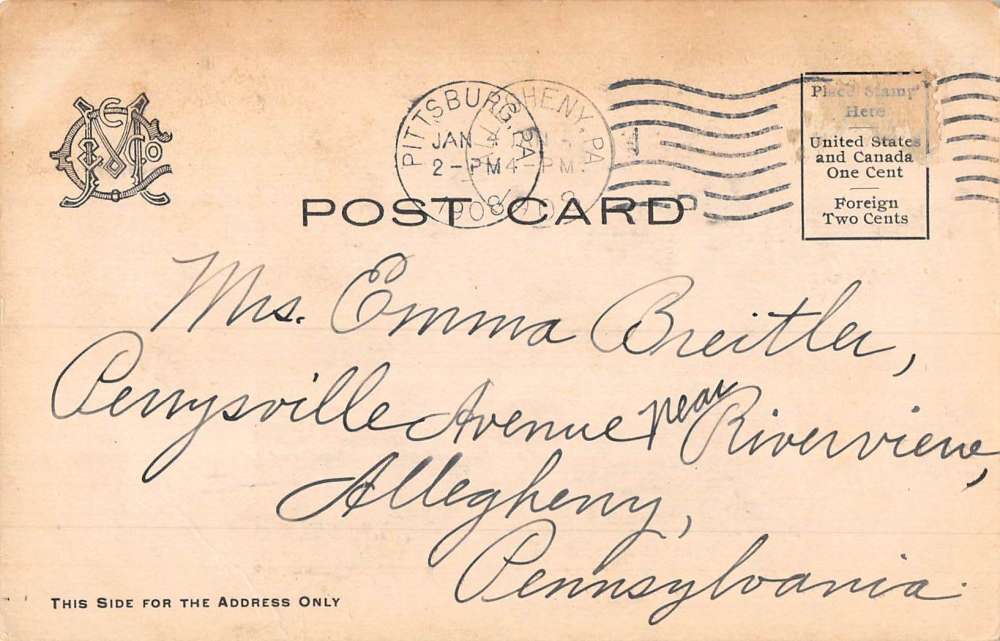 PITTSBURG, PA.
JAN 4
2-PM
1908
ALLEGHENY, PA.
4 PM
1908
Place Stamp
Here
United States
and Canada
One Cent
Foreign
Two Cents
POST CARD
Mrs. Emma Breitler,
Perrysville Avenue near Riverview,
Allegheny,
Pennsylvania.
THIS SIDE FOR THE ADDRESS ONLY